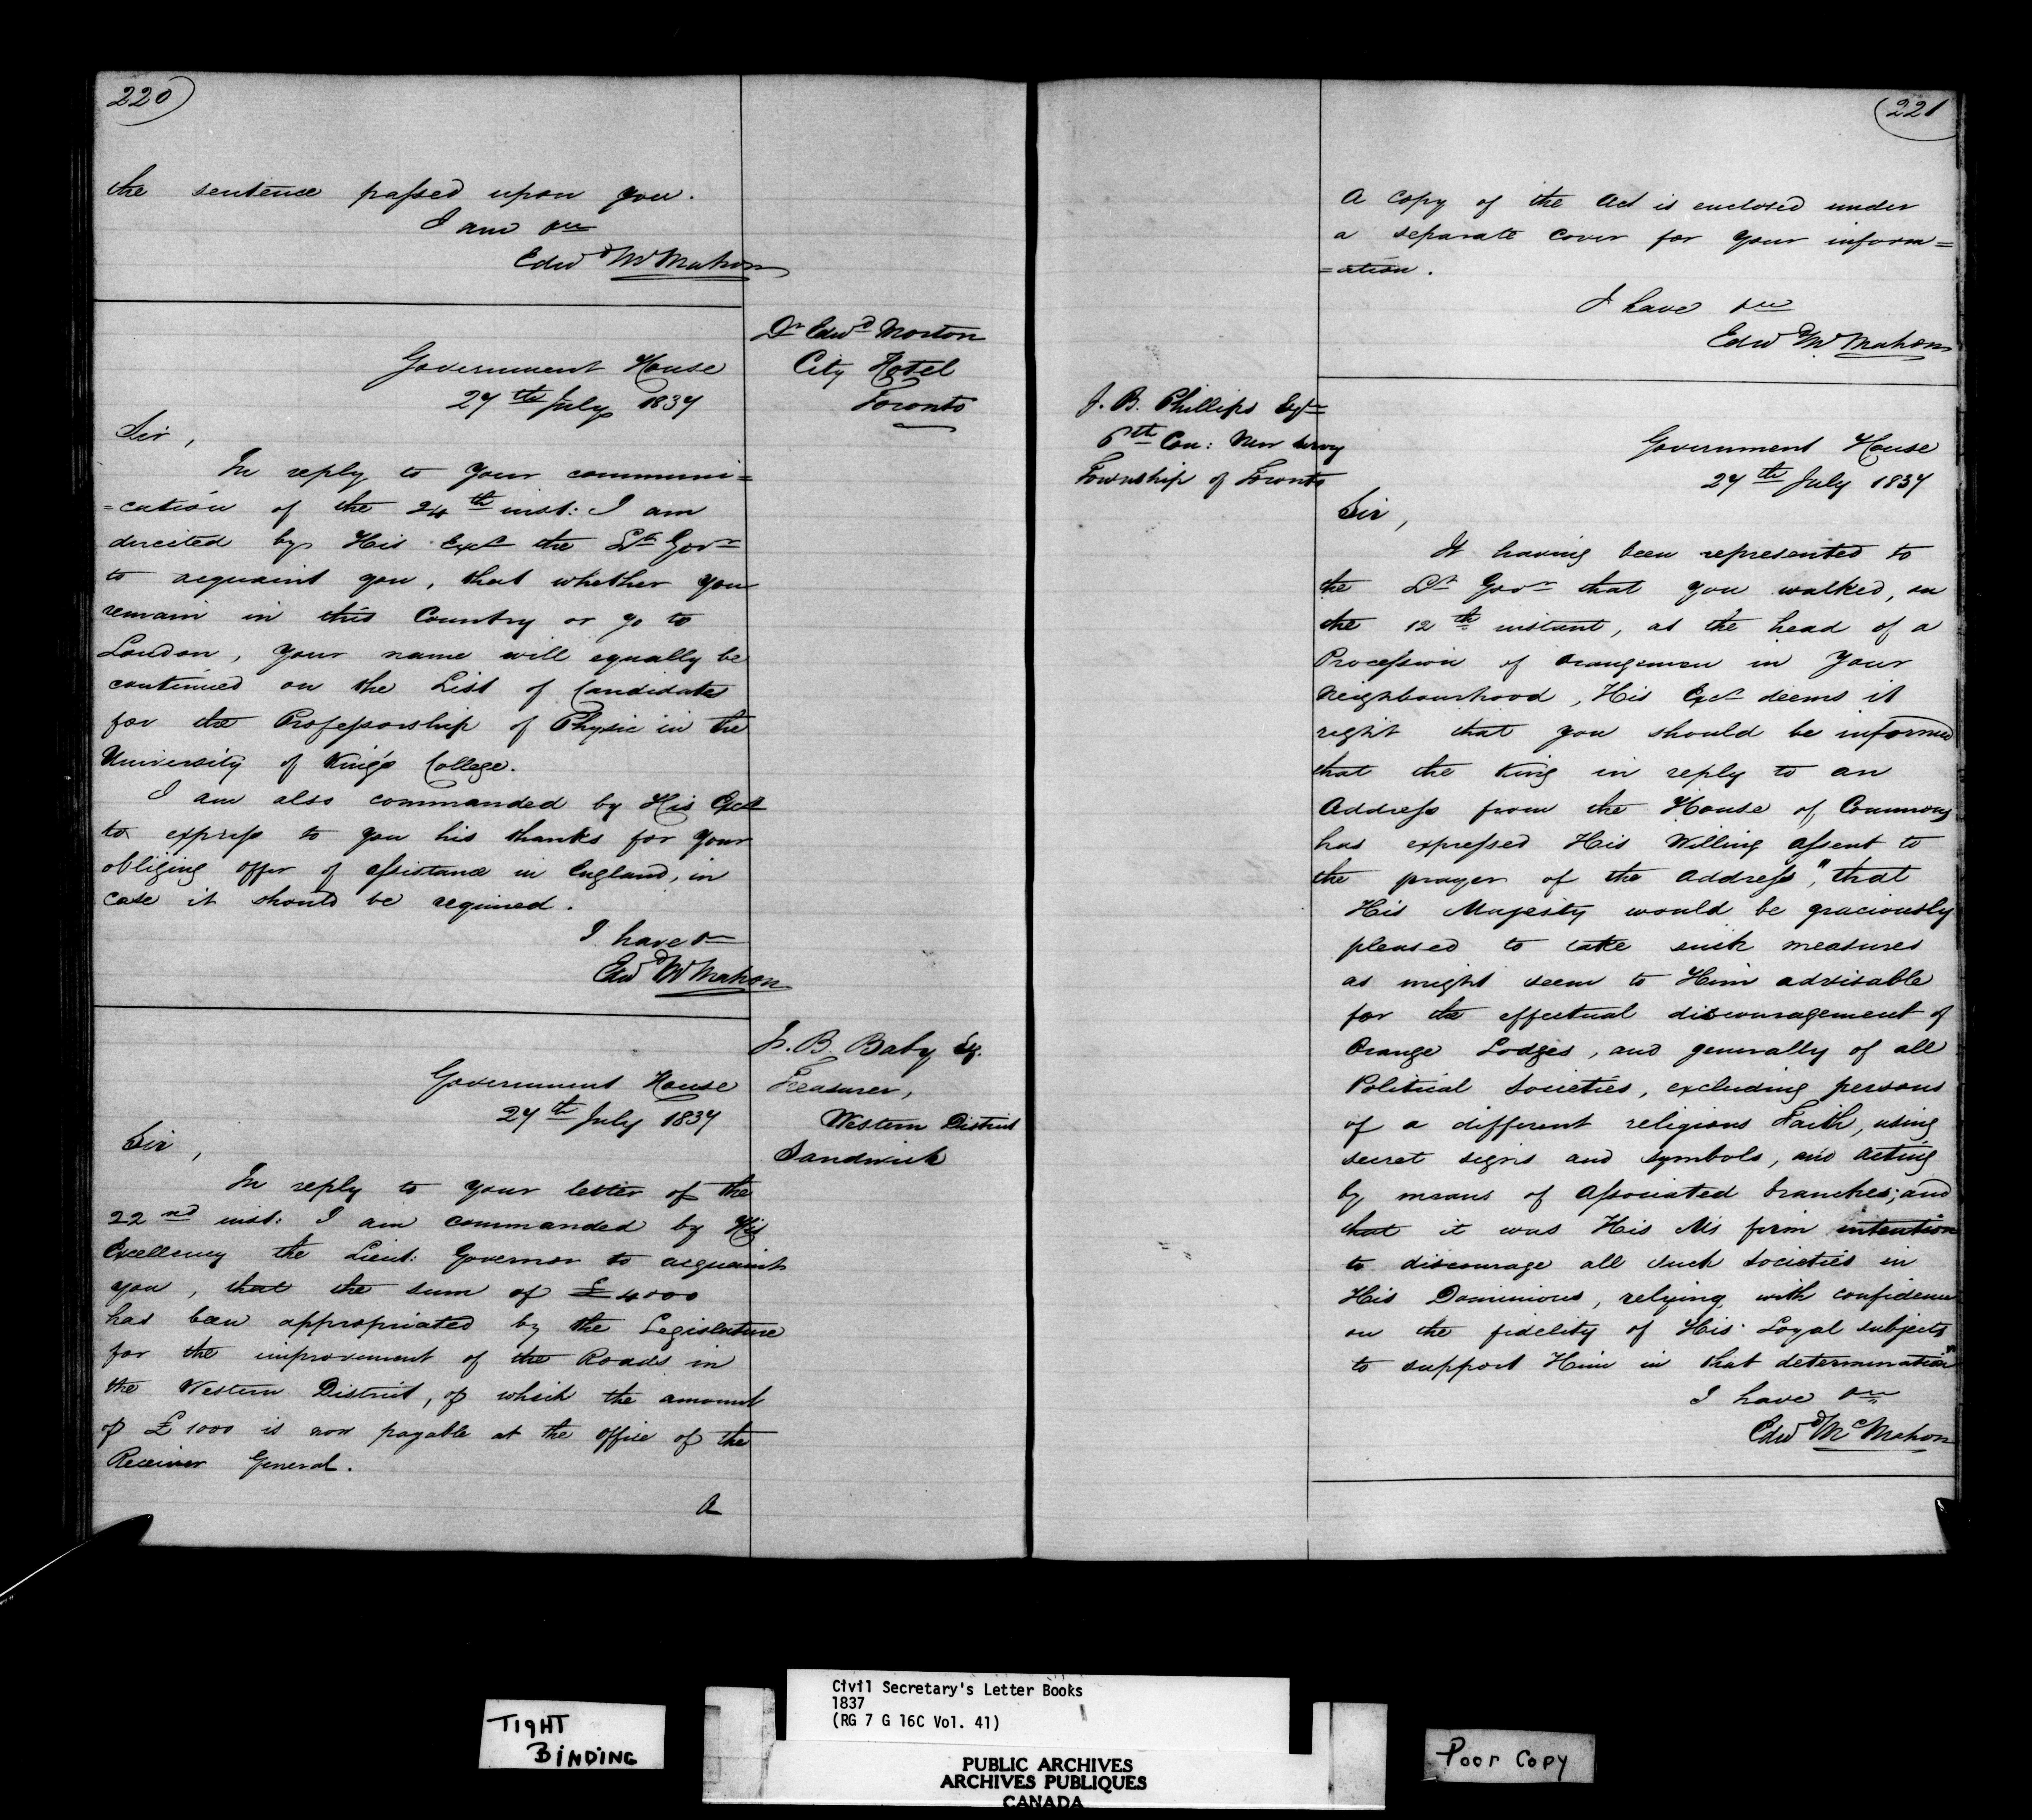 220
the sentence passed upon you.
I am &c
Edwd McMahon
Dr Edwd Morton
City Hotel
Toronto
Government House
27th July 1837
Sir,
In reply to your communi=
=cation of the 24th inst: I am
directed by His Excy the Lt Govr
to acquaint you, that whether you
remain in this Country or go to
London, your name will equally be
continued on the List of Candidates
for the Professorship of Physic in the
University of King's College.
I am also commanded by His Excy
to express to you his thanks for your
obliging offer of assistance in England, in
case it should be required.
I have &c
Edwd McMahon
J. B. Baby Esq.
Treasurer,
Western District
Sandwich
Government House
27th July 1837
Sir,
In reply to your letter of the
22nd inst: I am commanded by His
Excellency the Lieut: Governor to acquaint
you, that the sum of £4000
has been appropriated by the Legislature
for the improvement of the Roads in
the Western District, of which the amount
of £1000 is now payable at the office of the
Receiver General.
A
221
A copy of the Act is enclosed under
a separate cover for your inform=
=ation.
I have &c
Edwd McMahon
J. B. Phillips Esqr
6th Con: New Survey
Township of Toronto
Government House
27th July 1837
Sir,
It having been represented to
the Lt Govr that you walked, on
the 12th instant, at the head of a
Procession of Orangemen in your
neighbourhood, His Excy deems it
right that you should be informed
that the King in reply to an
Address from the House of Commons
has expressed His Willing assent to
the prayer of the Address, "that
His Majesty would be graciously
pleased to take such measures
as might seem to Him advisable
for the effectual discouragement of
Orange Lodges, and generally of all
Political Societies, excluding persons
of a different religious Faith, using
secret signs and symbols, and acting
by means of Associated branches; and
that it was His Ms firm intention
to discourage all such Societies in
His Dominions, relying with confidence
on the fidelity of His Loyal subjects
to support Him in that determination"
I have &c
Edwd McMahon
TIGHT
BINDING
Civil Secretary's Letter Books
1837
(RG 7 G 16C Vol. 41)
PUBLIC ARCHIVES
ARCHIVES PUBLIQUES
CANADA
Poor Copy